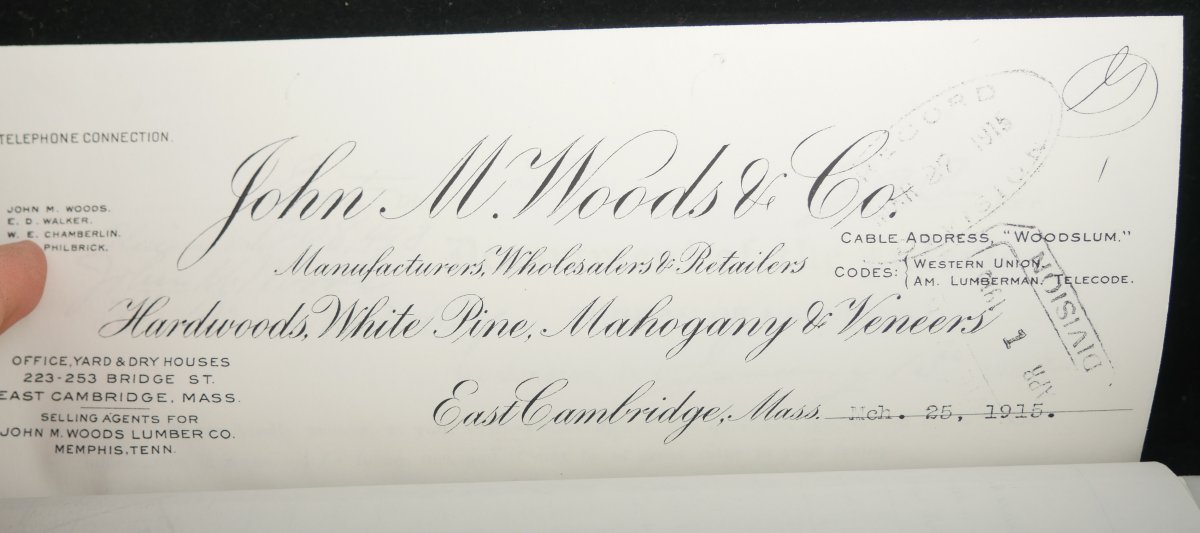 TELEPHONE CONNECTION.
JOHN M. WOODS.
E. D. WALKER.
W. E. CHAMBERLIN.
PHILBRICK.
John M. Woods & Co.
Manufacturers, Wholesalers & Retailers
Hardwoods, White Pine, Mahogany & Veneers
CABLE ADDRESS, "WOODSLUM."
CODES: WESTERN UNION.
AM. LUMBERMAN. TELECODE.
OFFICE, YARD & DRY HOUSES
223-253 BRIDGE ST.
EAST CAMBRIDGE, MASS.
SELLING AGENTS FOR
JOHN M. WOODS LUMBER CO.
MEMPHIS, TENN.
East Cambridge, Mass. Mch. 25, 1915.
RECORD
27 1915
DIVISION
APR 1